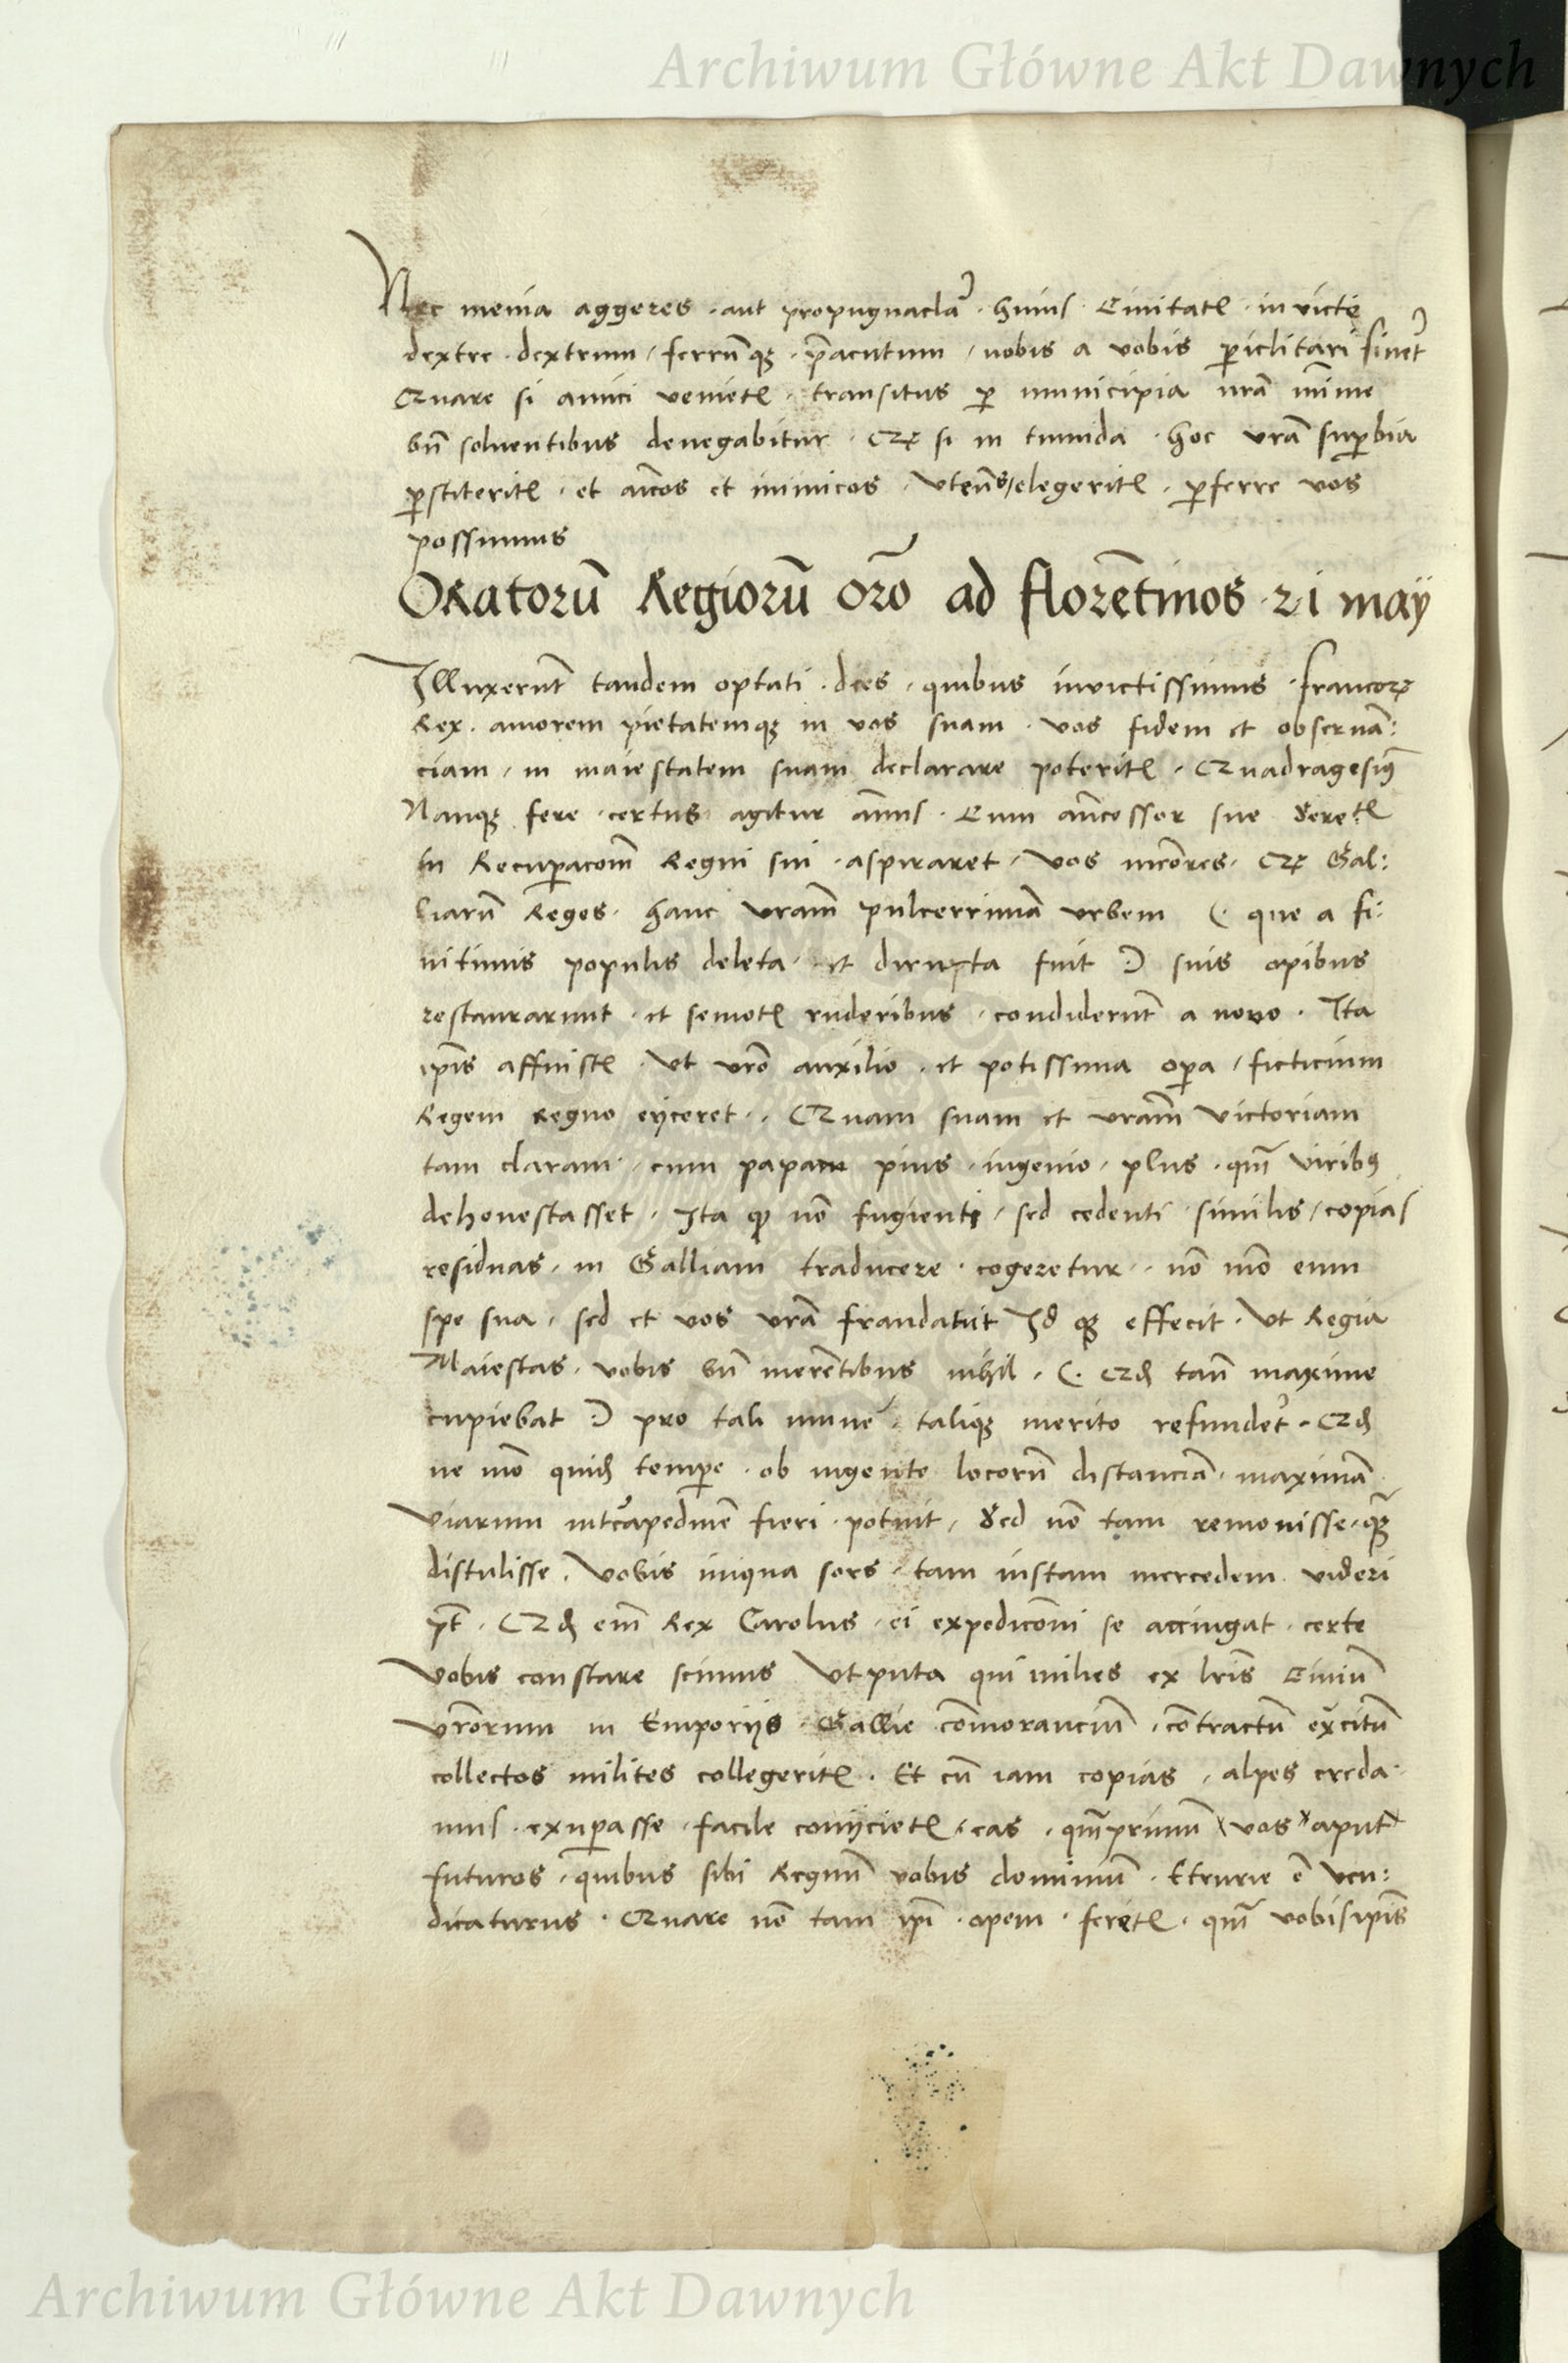 Archiwum Główne Akt Dawnych
Nec menia aggeres · aut propugnacla · huius · Ciuitatꝭ · inuicte
dextre · dextrum / ferrũqꝫ · p̃acutum / nobis a vobis ꝑiclitari sinet᷑
Quare si amici venietꝭ · transitus ꝑ municipia ur̃a mĩme
bñ soluentibus denegabitur · Qꝝ si in tumida · hoc vr̃a suꝑbia
ꝑstiteritꝭ · et aĩcos et inimicos · vt elegeritꝭ · ꝑferre vos
possumus
ORatorũ Regiorũ or̃o ad florẽtinos 21 maÿ
Illuxerũt tandem optati · dies · quibus inuictissimus · francoꝝ
Rex · amorem pietatemqꝫ in vos suam · vos fidem et obseruã:
ciam · in maiestatem suam declarare poteritꝭ · Quadragesiꝰ
Nanqꝫ fere · certus agitur ãnus · Cum ãncessor sue Seretꝭ
in Recuꝑacom̃ Regni sui · aspiraret · vos · Qꝝ Gal:
liarũ Reges · hanc vram̃ pulcerrimã vrbem (· que a fi:
nitimis populis deleta · et dirupta fuit :) suis opibus
restaurarunt · et semotꝭ ruderibus · condiderũt a nouo · Ita
ip̃is affuistꝭ · vt vr̃o auxilio · et potissima oꝑa / ficticium
Regem Regno eyceret · Quam suam et vram̃ victoriam
tam claram · cum papam pius · ingenio · plus · qm̃ viribꝰ
dehonestasset · Ita ꝙ nõ fugienti · sed cedenti similis / copias
residuas · in Galliam traducere · cogeretur · nõ mõ eum
spe sua · sed et vos vr̃a fraudatuit Id qꝫ effecit · vt Regia
Maiestas · vobis bñ merẽtibus nihil · (· Qꝺ tañ maxime
cupiebat :) pro tali mune᷑ · taliqꝫ merito refunde᷑t · Qꝺ
ne mõ quiꝺ temꝑe · ob ingentẽ locorũ distanciã · maximã
viarum int᷑capedinẽ fieri · potuit · Sed nõ tam remouisse · qꝫ̃
distulisse · vobis iniqua sors · tam iustam mercedem videri
pt̃ · Qꝺ em̃ Rex Carolus · ei expedicõni se accingat · certe
vobis constare scimus vtputa qui milies ex lr̃is Ciuiũ
vr̃orum in Emporijs · Gallie cõmoranciũ · cõtractũ ex᷑citũ
collectos milites collegeritꝭ · Et cũ iam copias · alpes creda
mus · exuꝑasse · facile conijcietꝭ · eas · qm̃primũ vos aput
futuros · quibus sibi Regnũ vobis dominiũ · Etrurie ẽ ven:
dicaturus · Quare nõ tam ip̃i · opem · feretꝭ · qm̃ vobisip̃is
Archiwum Główne Akt Dawnych